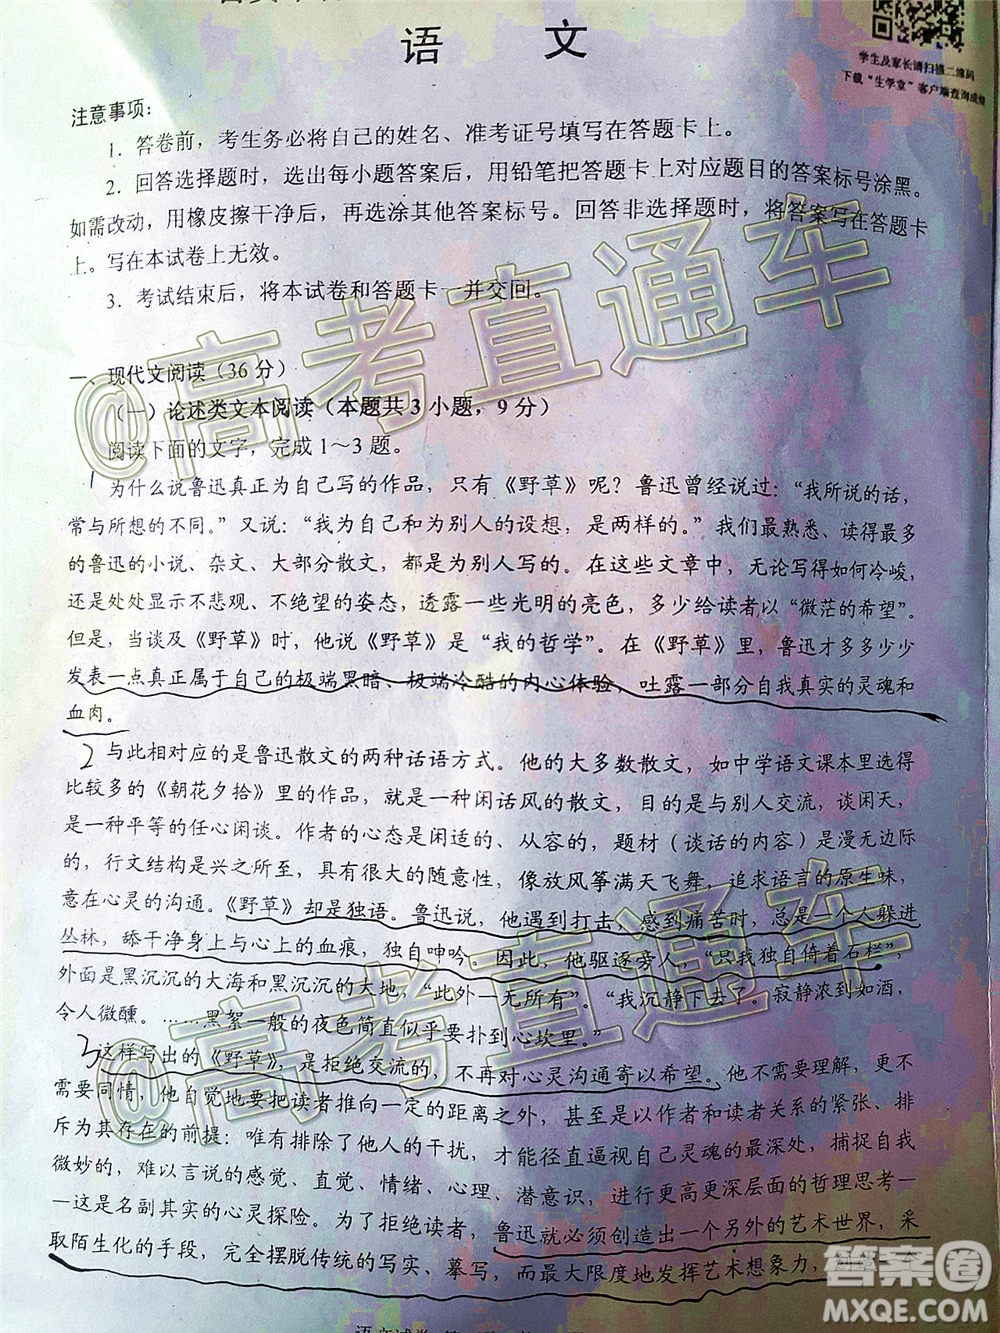 语 文
学生及家长请扫描二维码
下载“生学堂”客户端查询成绩
注意事项:
1. 答卷前，考生务必将自己的姓名、准考证号填写在答题卡上。
2. 回答选择题时，选出每小题答案后，用铅笔把答题卡上对应题目的答案标号涂黑。
如需改动，用橡皮擦干净后，再选涂其他答案标号。回答非选择题时，将答案写在答题卡
上。写在本试卷上无效。
3. 考试结束后，将本试卷和答题卡一并交回。
@高考直通车
一、现代文阅读（36 分）
（一）论述类文本阅读（本题共 3 小题，9 分）
阅读下面的文字，完成 1～3 题。
1 为什么说鲁迅真正为自己写的作品，只有《野草》呢？鲁迅曾经说过：“我所说的话，
常与所想的不同。”又说：“我为自己和为别人的设想，是两样的。”我们最熟悉、读得最多
的鲁迅的小说、杂文、大部分散文，都是为别人写的。在这些文章中，无论写得如何冷峻，
还是处处显示不悲观、不绝望的姿态，透露一些光明的亮色，多少给读者以“微茫的希望”。
但是，当谈及《野草》时，他说《野草》是“我的哲学”。在《野草》里，鲁迅才多多少少
发表一点真正属于自己的极端黑暗、极端冷酷的内心体验，吐露一部分自我真实的灵魂和
血肉。
2 与此相对应的是鲁迅散文的两种话语方式。他的大多数散文，如中学语文课本里选得
比较多的《朝花夕拾》里的作品，就是一种闲话风的散文，目的是与别人交流，谈闲天，
是一种平等的任心闲谈。作者的心态是闲适的、从容的，题材（谈话的内容）是漫无边际
的，行文结构是兴之所至，具有很大的随意性，像放风筝满天飞舞，追求语言的原生味，
意在心灵的沟通。《野草》却是独语。鲁迅说，他遇到打击，感到痛苦时，总是一个人躲进
丛林，舔干净身上与心上的血痕，独自呻吟。因此，他驱逐旁人，“只我独自倚着石栏”，
外面是黑沉沉的大海和黑沉沉的大地，“此外一无所有”。“我沉静下去了。寂静浓到如酒，
令人微醺。……黑絮一般的夜色简直似乎要扑到心坎里。”
@高考直通车
3 这样写出的《野草》，是拒绝交流的，不再对心灵沟通寄以希望。他不需要理解，更不
需要同情，他自觉地要把读者推向一定的距离之外，甚至是以作者和读者关系的紧张、排
斥为其存在的前提：唯有排除了他人的干扰，才能径直逼视自己灵魂的最深处，捕捉自我
微妙的，难以言说的感觉、直觉、情绪、心理、潜意识，进行更高更深层面的哲理思考—
—这是名副其实的心灵探险。为了拒绝读者，鲁迅就必须创造出一个另外的艺术世界，采
取陌生化的手段，完全摆脱传统的写实、摹写，而最大限度地发挥艺术想象力，
答案圈
MXQE.COM